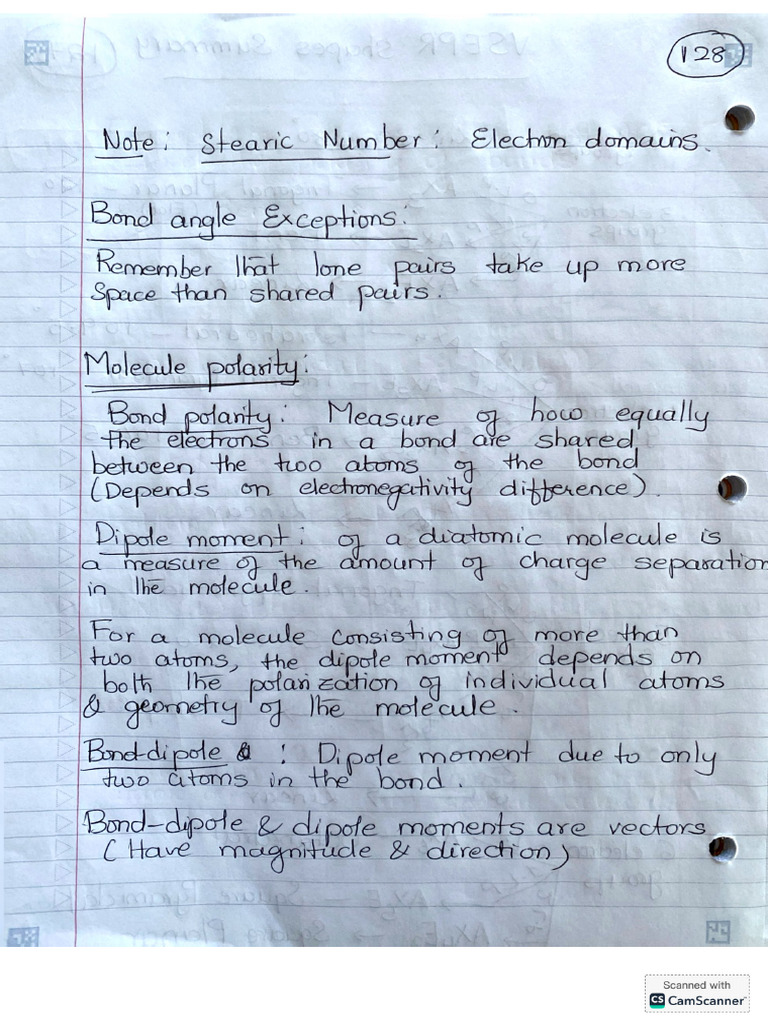 128
Note: Stearic Number: Electron domains.
Bond angle Exceptions:
Remember that lone pairs take up more
space than shared pairs.
Molecule polarity:
Bond polarity: Measure of how equally
the electrons in a bond are shared
between the two atoms of the bond
(Depends on electronegativity difference).
Dipole moment: of a diatomic molecule is
a measure of the amount of charge separation
in the molecule.
For a molecule consisting of more than
two atoms, the dipole moment depends on
both the polarization of individual atoms
& geometry of the molecule.
Bond-dipole : Dipole moment due to only
two atoms in the bond.
Bond-dipole & dipole moments are vectors
(Have magnitude & direction)
Scanned with
CS CamScanner